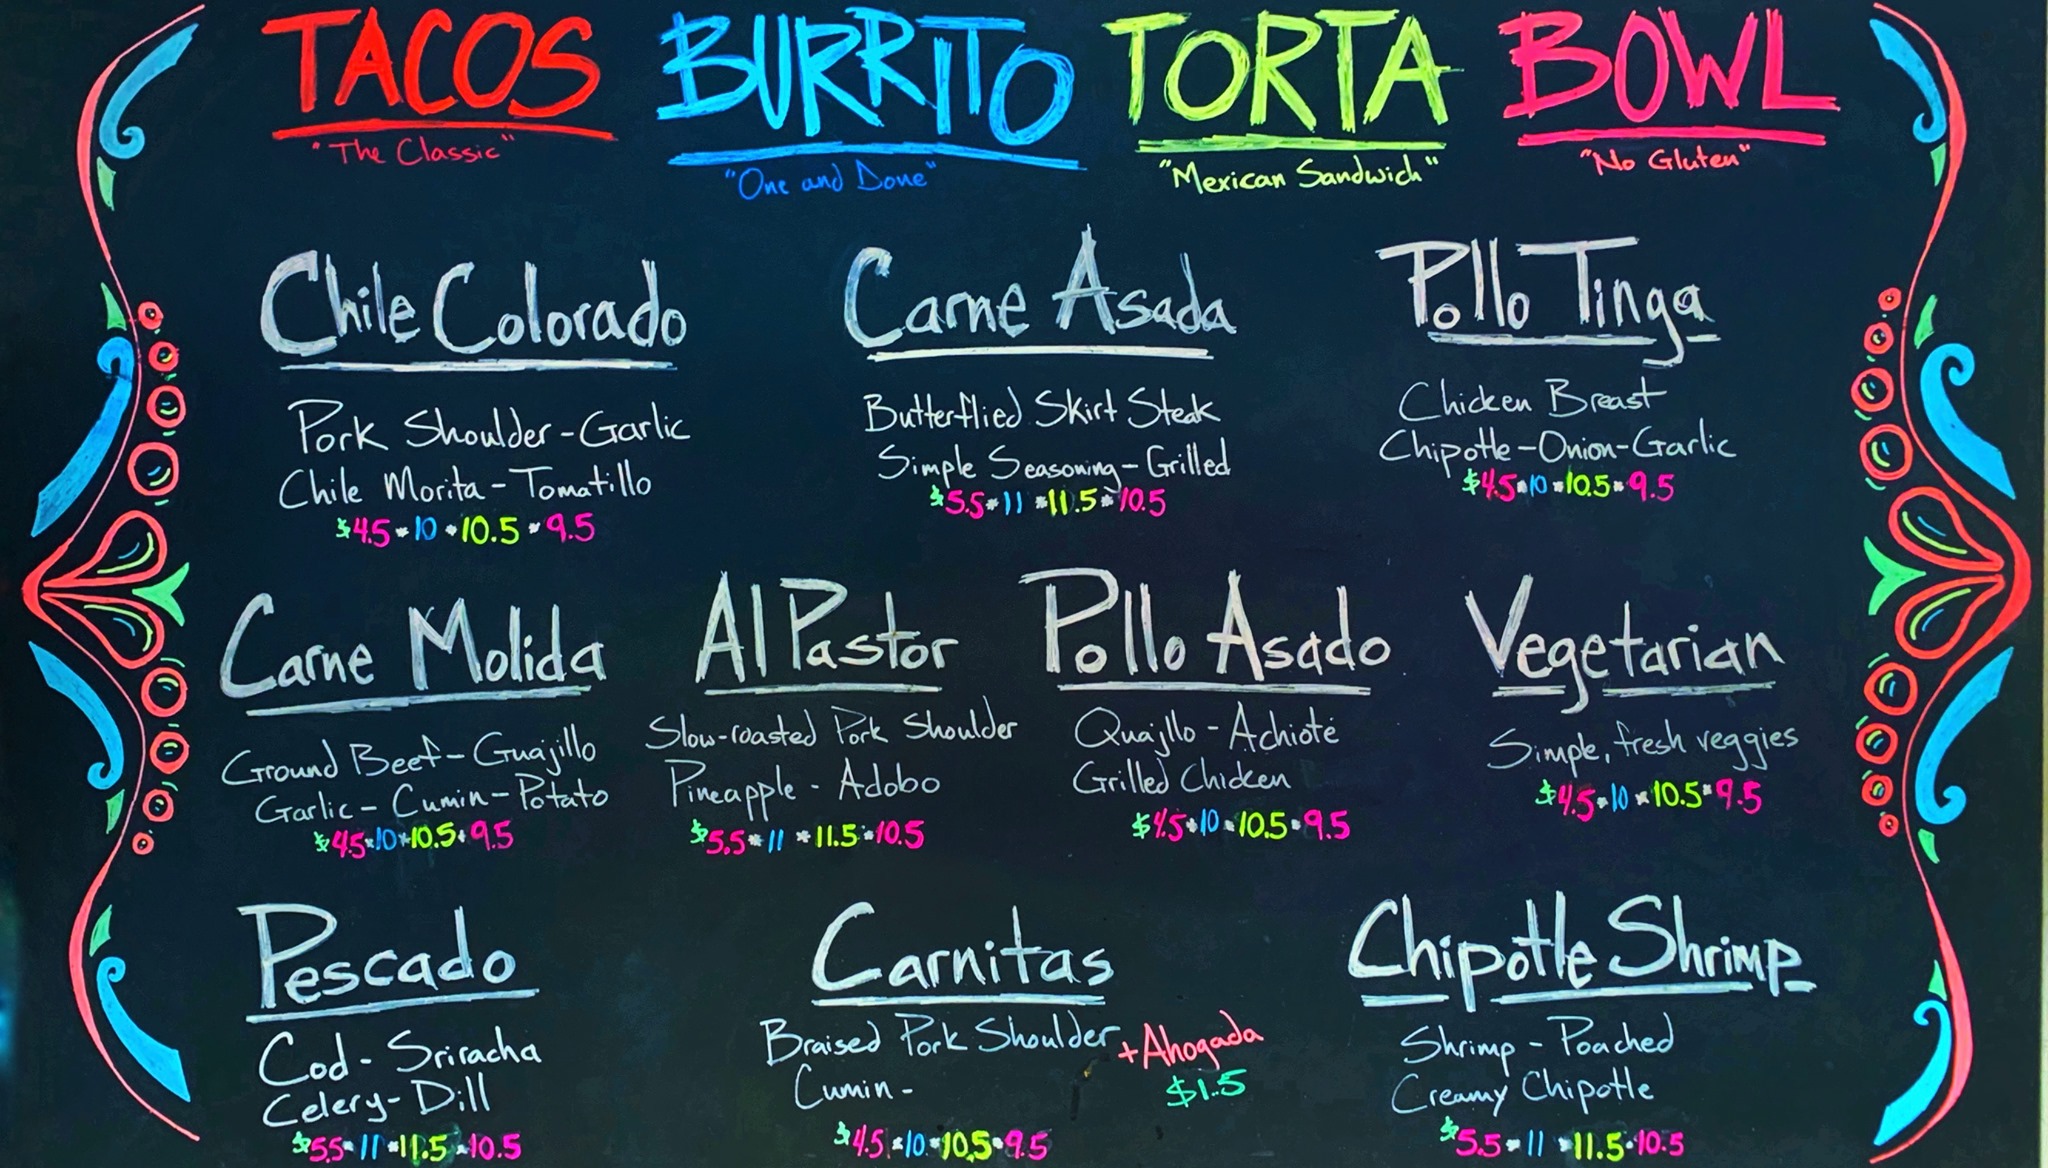 TACOS
"The Classic"
BURRITO
"One and Done"
TORTA
"Mexican Sandwich"
BOWL
"No Gluten"
Chile Colorado
Pork Shoulder-Garlic
Chile Morita-Tomatillo
$4.5*10*10.5*9.5
Carne Asada
Butterflied Skirt Steak
Simple Seasoning-Grilled
$5.5*11*11.5*10.5
Pollo Tinga
Chicken Breast
Chipotle-Onion-Garlic
$4.5*10*10.5*9.5
Carne Molida
Ground Beef-Guajillo
Garlic-Cumin-Potato
$4.5*10*10.5*9.5
Al Pastor
Slow-roasted Pork Shoulder
Pineapple - Adobo
$5.5*11*11.5*10.5
Pollo Asado
Quajllo - Achioté
Grilled Chicken
$4.5*10*10.5*9.5
Vegetarian
Simple, fresh veggies
$4.5*10*10.5*9.5
Pescado
Cod - Sriracha
Celery-Dill
$5.5*11*11.5*10.5
Carnitas
Braised Pork Shoulder
Cumin-
+Ahogada
$1.5
$4.5*10*10.5*9.5
Chipotle Shrimp
Shrimp - Poached
Creamy Chipotle
$5.5*11*11.5*10.5